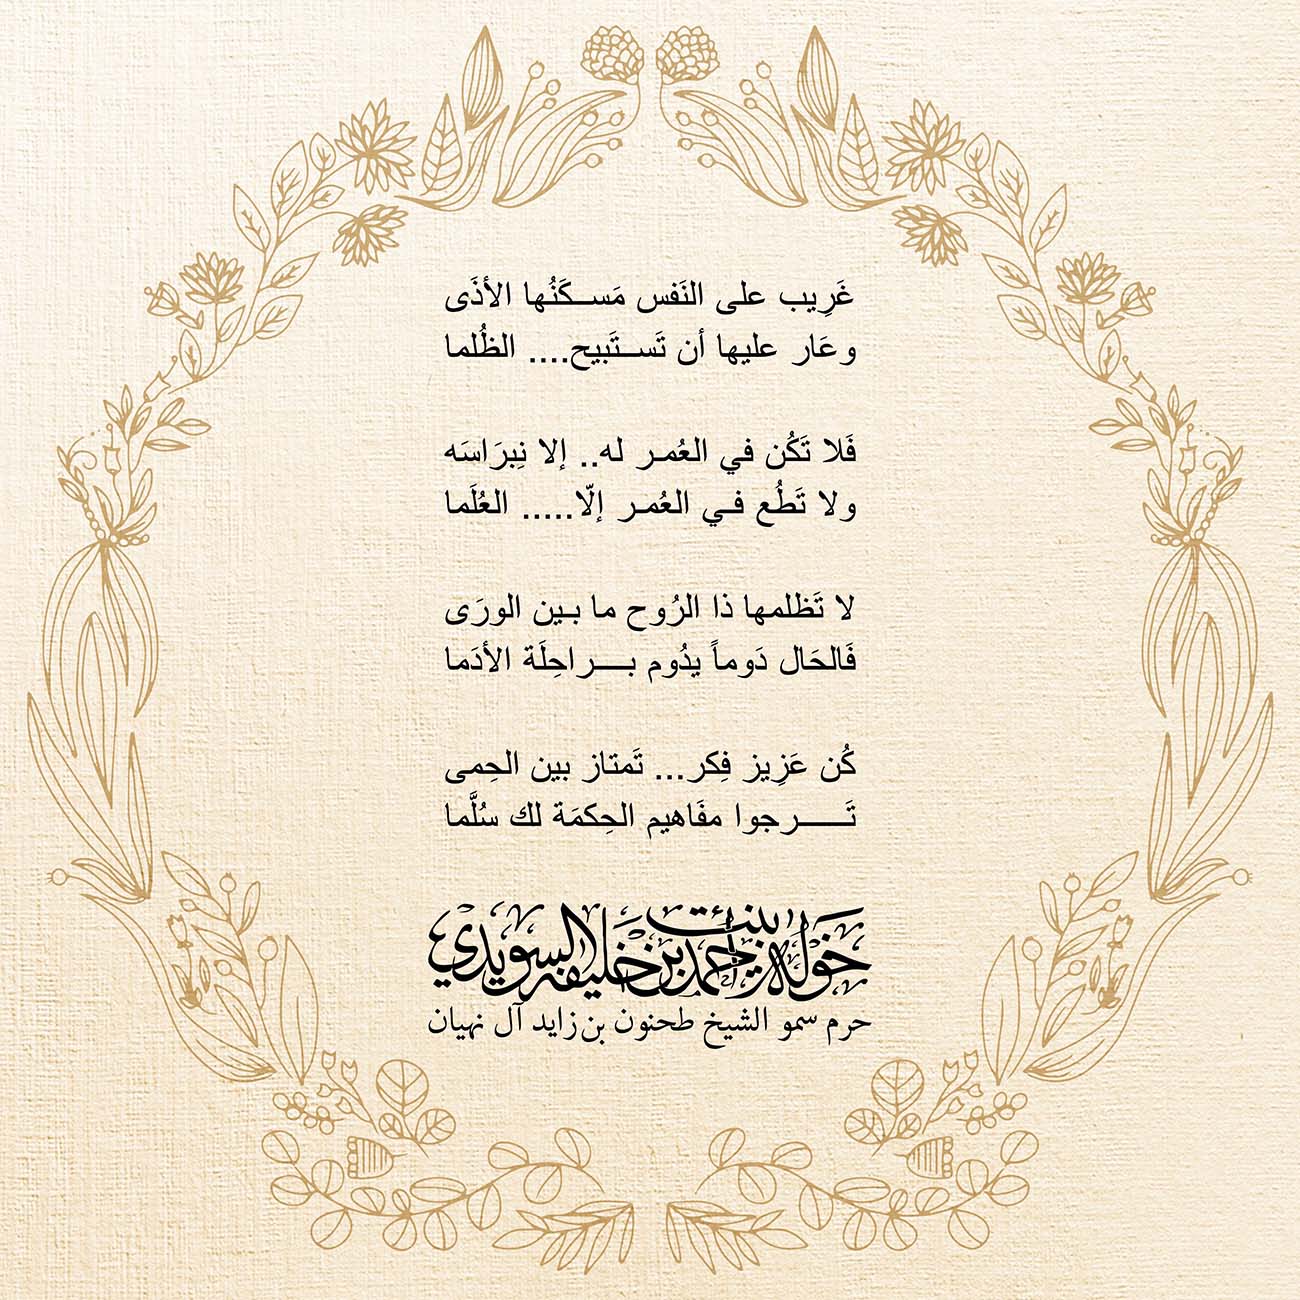 غَرِيب على النَفس مَســكَنُها الأذَى
وعَار عليها أن تَســتَبيح.... الظُلما
فَلا تَكُن في العُمـر له.. إلا نِبرَاسَه
ولا تَطُع فـي العُمـر إلّا..... العُلَما
لا تَظلمها ذا الرُوح ما بـين الورَى
فَالحَال دَوماً يدُوم بــــراحِلَة الأدَما
كُن عَزِيز فِكر... تَمتاز بين الحِمى
تَـــــرجوا مفَاهيم الحِكمَة لك سُلَّما
خوله بنت أحمد بن خليفة السويدي
حرم سمو الشيخ طحنون بن زايد آل نهيان